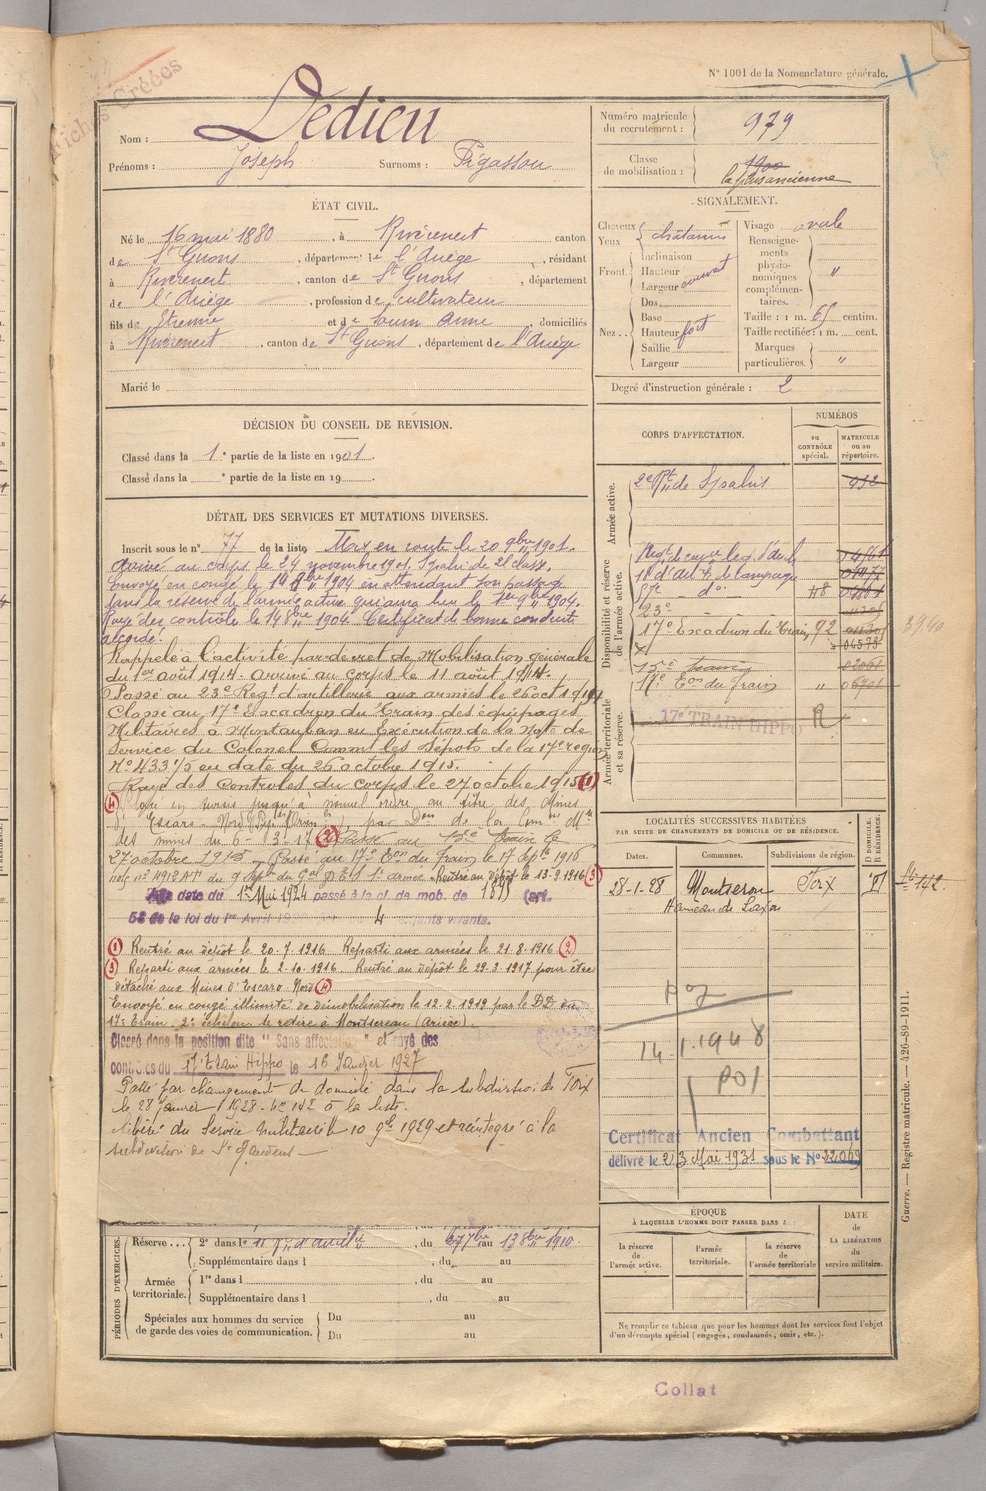 Fiches Créées
N° 1001 de la Nomenclature générale.
Nom : Dedieu
Prénoms : Joseph Surnoms : Pigassou
Numéro matricule du recrutement : 979
Classe de mobilisation : 1900
la plus ancienne
ÉTAT CIVIL.
Né le 16 mai 1880, à Rivèrenert canton
de St Girons, département de l'Ariège, résidant
à Rivèrenert, canton de St Girons, département
de l'Ariège, profession de cultivateur
fils de Etienne et de Soum Anne, domiciliés
à Rivèrenert, canton de St Girons, département de l'Ariège
Marié le
SIGNALEMENT.
Cheveux
Yeux châtains
Front. Inclinaison
Hauteur
Largeur couvert
Nez. Dos
Base
Hauteur fort
Saillie
Largeur
Visage ovale
Renseignements physionomiques complémentaires. "
Taille : 1 m. 65 centim.
Taille rectifiée : 1 m. cent.
Marques particulières. "
Degré d'instruction générale : 2
DÉCISION DU CONSEIL DE RÉVISION.
Classé dans la 1e partie de la liste en 1901.
Classé dans la e partie de la liste en 19
CORPS D'AFFECTATION.
NUMÉROS
au CONTRÔLE spécial.
MATRICULE ou au répertoire.
Armée active.
2e Rt de Spahis 932
Disponibilité et réserve de l'armée active.
1er d'artie de campagne
57e - do - H8
23e
17e Escadron du Train 92 04573
3940
15e train 02061
17e Eon du train " 06701
Armée territoriale et sa réserve.
17e TRAIN HIPPO R
DÉTAIL DES SERVICES ET MUTATIONS DIVERSES.
Inscrit sous le n° 77 de la liste Mis en route le 20 9bre 1901.
Arrivé au corps le 24 novembre 1901. Spahi de 2e classe.
Envoyé en congé le 14 8bre 1904 en attendant son passage
dans la réserve de l'armée active qui aura lieu le 1er 9bre 1904.
Rayé des contrôles le 14 8bre 1904. Certificat de bonne conduite
accordé.
Rappelé à l'activité par decret de Mobilisation générale
du 1er août 1914. arrivé au corps le 11 août 1914.
Passé au 23e Regt d'artillerie aux armées le 26 oct 1914
Classé au 17e Escadron du Train des équipages
Militaires à Montauban en Exécution de la Note de
Service du Colonel Commt les Dépots de la 17e région
N° 433 1/5 en date du 26 octobre 1915.
Rayé des Controles du Corps le 27 octobre 1915 (1)
(4) en sursis jusqu'à nouvel ordre au titre des Mines
d'Escaro-Nord (Pyr. Orien.) par Don de la Com.
des mines du 6-3-17 (2) Passé au 15e Train le
27 octobre 1915 - Passé au 17e Eon du Train le 17 Sept 1916
Rentré au dépôt le 13-9-1916 (3)
A la date du 1er Mai 1924 passé à la cl. de mob. de 1893 (art.
58 de la loi du 1er Avril 4 enfants vivants.
(1) Rentré au dépôt le 20-7-1916 Reparti aux armées le 21-8-1916 (2)
(3) Reparti aux armées le 2-10-1916 Rentré au dépôt le 29-3-1917 pour être
détaché aux Mines d'Escaro-Nord (4)
Envoyé en congé illimité de démobilisation le 12-2-1919 par le D.D. du
17e Train. 2e échelon se retire à Montsereau (Ariège).
Classé dans la position dite "Sans affectation" et rayé des
contrôles du 17e train Hippo le 16 Janvier 1927
Passé par changement de domicile dans la subdivision de Foix
le 28 Janvier 1928 - N° 142 à la liste.
Libéré du Service militaire le 10 9bre 1929 et réintégré à la
subdivision de St Gaudens
LOCALITÉS SUCCESSIVES HABITÉES
PAR SUITE DE CHANGEMENTS DE DOMICILE OU DE RÉSIDENCE.
Dates. Communes. Subdivisions de région. D DOMICILE. R RÉSIDENCE.
28-1-28 Montseron Foix D
Hameau de
142
14.1.1948
Certificat Ancien Combattant
délivré le 23 Mai 1931 sous le N° 22069
PÉRIODES D'EXERCICES.
Réserve . . . 2e dans le , du au 13 8bre 1910.
Supplémentaire dans l , du au
Armée territoriale. 1re dans l , du au
Supplémentaire dans l , du au
Spéciales aux hommes du service de garde des voies de communication. Du au
Du au
ÉPOQUE
À LAQUELLE L'HOMME DOIT PASSER DANS :
la réserve de l'armée active.
l'armée territoriale.
la réserve de l'armée territoriale
DATE de LA LIBÉRATION du service militaire.
Ne remplir ce tableau que pour les hommes dont les services font l'objet
d'un décompte spécial (engagés, condamnés, omis, etc.).
Guerre. — Registre matricule. — 426-89-1911.
Collat